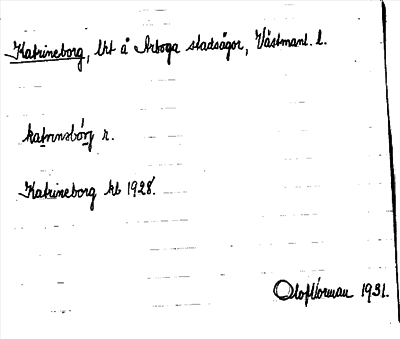 Katrineborg, Urt å Arboga stadsägor, Västmanl. l.
katrinsbórj r.
Katrineborg kb 1928.
Olof Norman 1931.